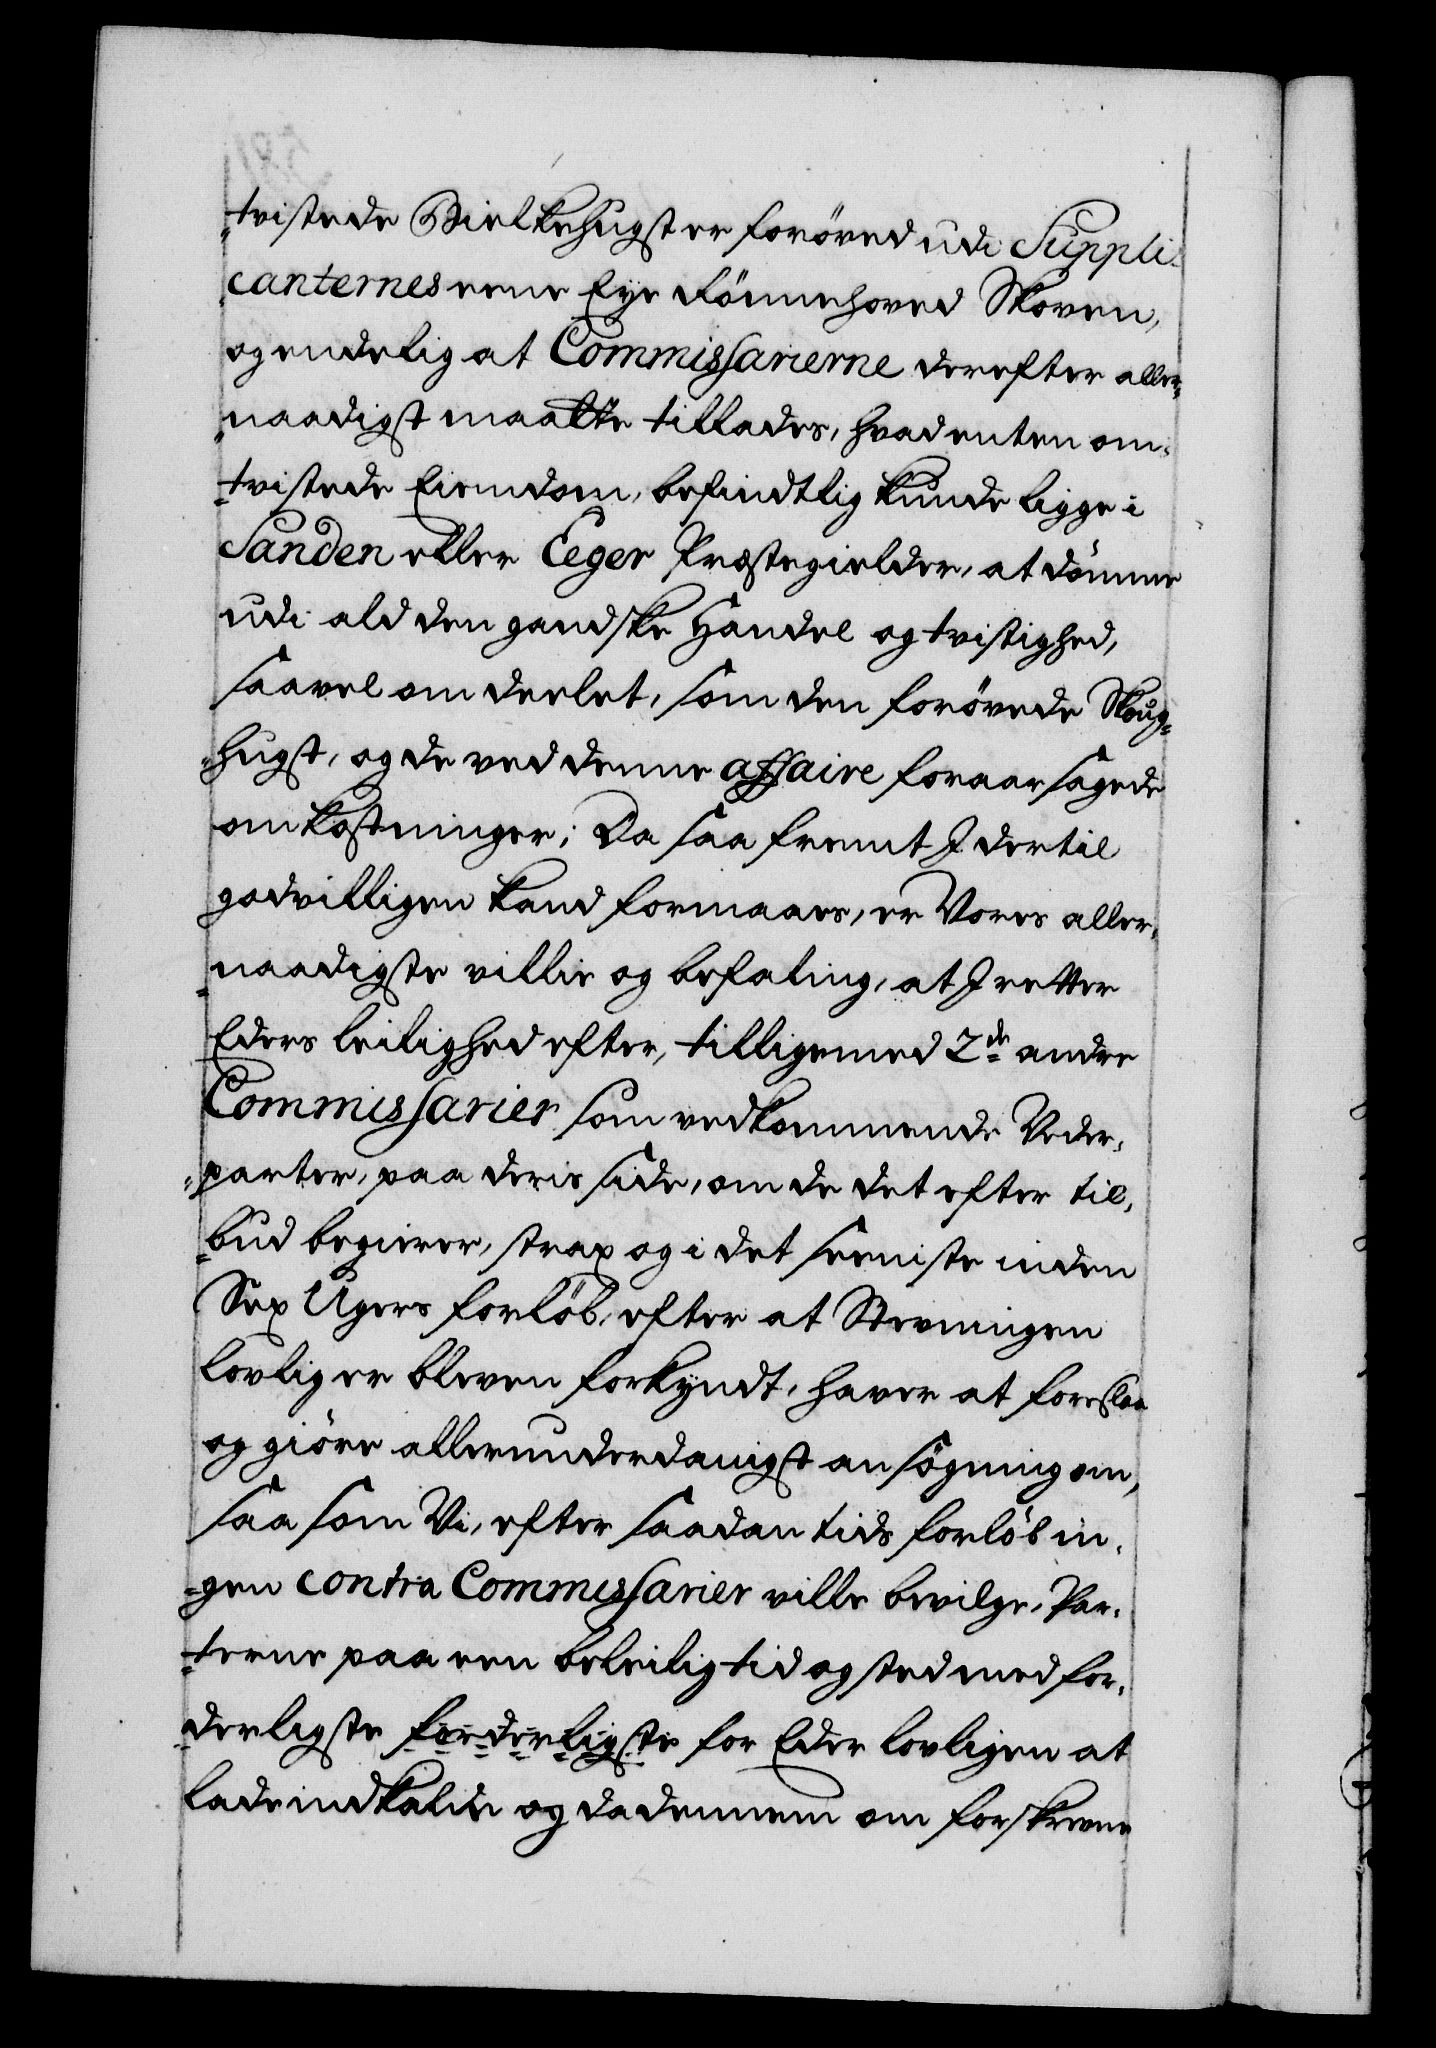 tvistede Bielkehugst er forøved udi Suppli-
canternes eene Eye Lönnehoved Skoven,
og endelig at Commissarierne derefter aller-
naadigst maatte tillades, hvad enten om-
tvistede Eiendom, befindtlig kunde ligge i
Sanden eller Eeger Præstegielder, at dömme
udi ald den gandske Handel og tvistighed,
saavel om deelet, som den forövede Skoug-
hugst, og de ved denne affaire foraarsagede
omkostninger; Da saa fremt I dertil
godvilligen kand formaaes, er Vores aller-
naadigste villie og befaling, at I retter
Eders leilighed efter, tilligemed 2de andre
Commissarier som vedkommende Veder-
parter, paa deris side, om de det efter til-
bud begierer, strax og i det seeniste inden
Sex Ugers forlöb, efter at Stevningen
lovlig er bleven forkyndt, haver at foreslaa
og giöre allerunderdanigst ansögning om,
saa som Vi, efter saadan tids forlöb in-
gen contra Commissarier ville bevilge, Par-
terne paa een beleilig tid og sted med for-
derligste forderligste for Eder lovligen at
lade indkalde og da dennem om forskrevne